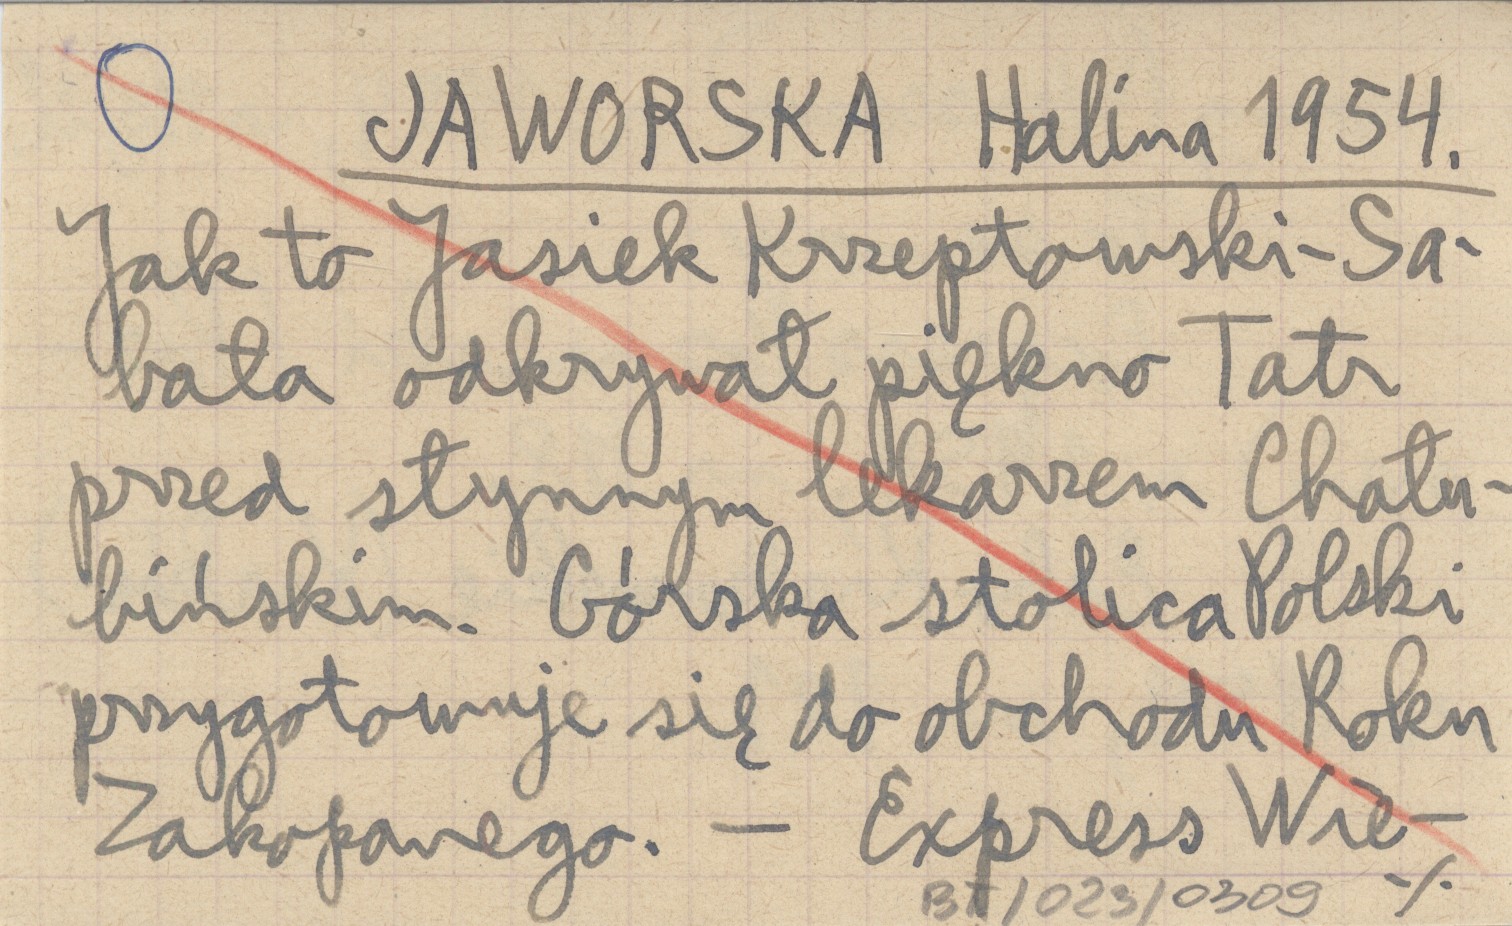 JAWORSKA Halina 1954.
Jak to Jasiek Krzeptowski-Sa-
bała odkrywał piękno Tatr
przed słynnym lekarzem Chału-
bińskim. Górska stolica Polski
przygotowuje się do obchodu Roku
Zakopanego. — Express Wie-
-/.
BT/023/0309